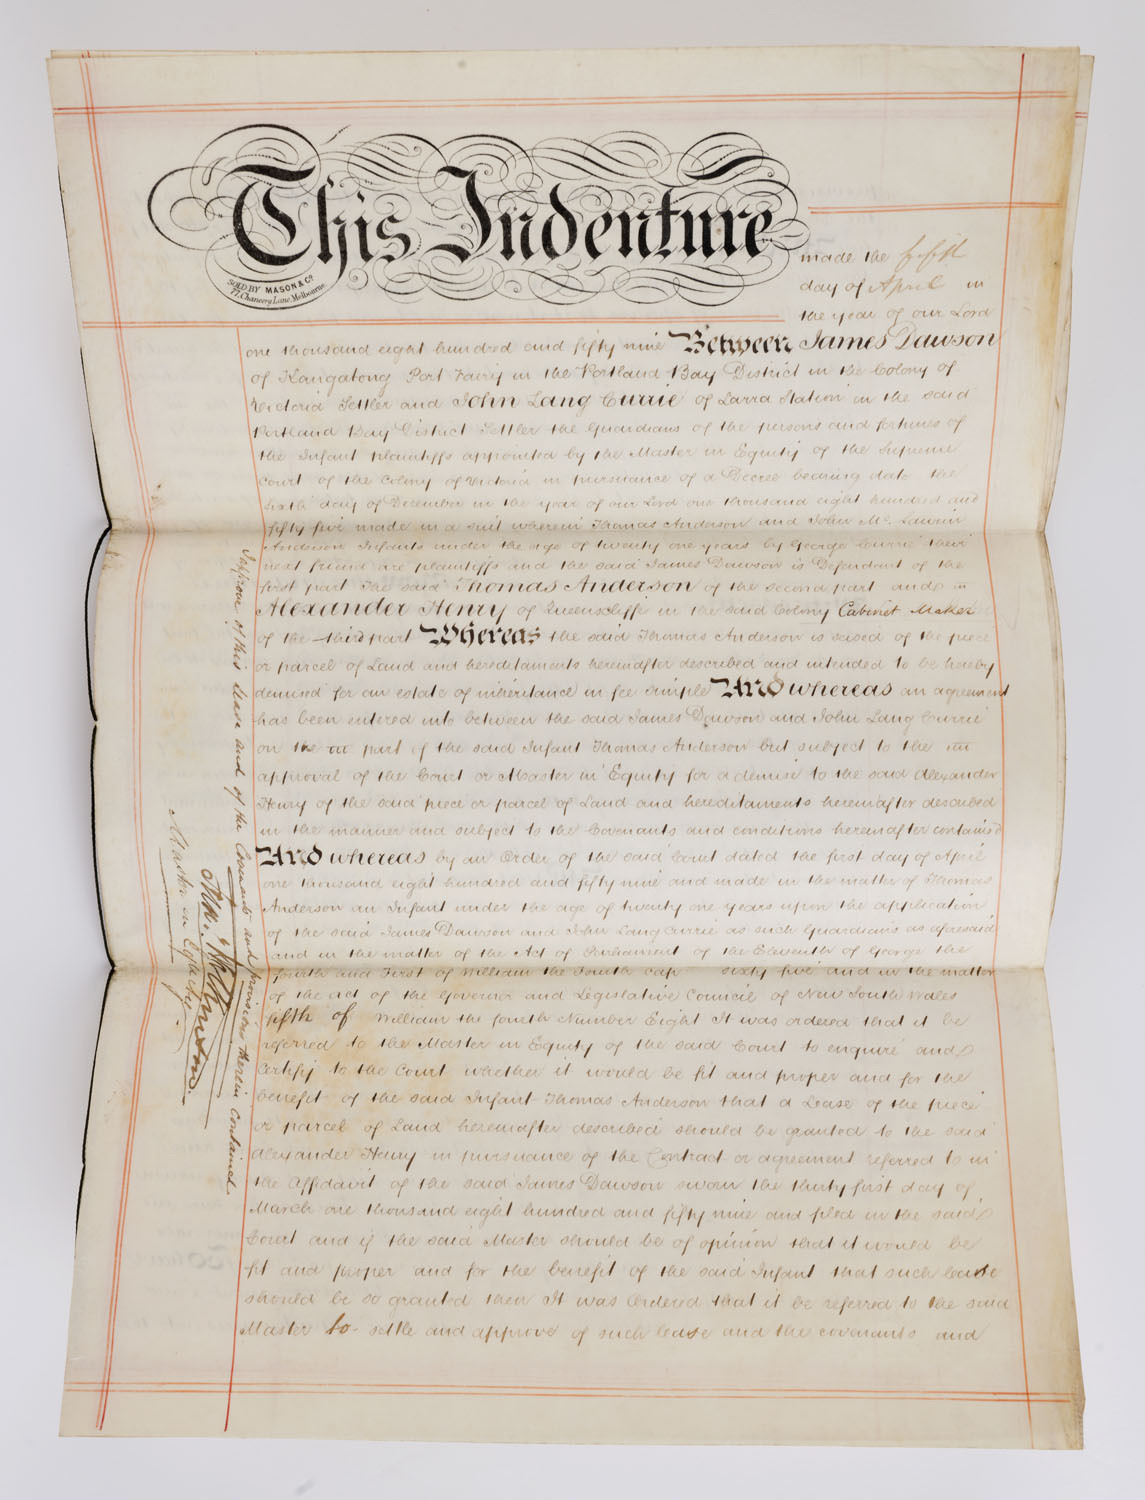 This Indenture
SOLD BY MASON & Co
77, Chancery Lane, Melbourne
made the fifth
day of April in
the year of our Lord
one thousand eight hundred and fifty nine Between James Dawson
of Kangatong Port Fairy in the Portland Bay District in the Colony of
Victoria Settler and John Lang Currie of Larra Station in the said
Portland Bay District Settler the Guardians of the persons and fortunes of
the Infant plaintiffs appointed by the Master in Equity of the Supreme
Court of the Colony of Victoria in pursuance of a Decree bearing date the
Sixth day of December in the year of our Lord one thousand eight hundred and
fifty five made in a suit wherein Thomas Anderson and John Mc
Anderson Infants under the age of twenty one years by George Currie their
next friend are plaintiffs and the said James Dawson is Defendant of the
first part The said Thomas Anderson of the second part and
Alexander Henry of Queenscliffe in the said Colony Cabinet Maker
of the third part Whereas the said Thomas Anderson is seised of the piece
or parcel of Land and hereditaments hereinafter described and intended to be hereby
demised for an estate of inheritance in fee simple And whereas an agreement
has been entered into between the said James Dawson and John Lang Currie
on the part of the said Infant Thomas Anderson but subject to the
approval of the Court or Master in Equity for a demise to the said Alexander
Henry of the said piece or parcel of Land and hereditaments hereinafter described
in the manner and subject to the Covenants and conditions hereinafter contained
And whereas by an Order of the said Court dated the first day of April
one thousand eight hundred and fifty nine and made in the matter of Thomas
Anderson an Infant under the age of twenty one years upon the application
of the said James Dawson and John Lang Currie as such Guardians as aforesaid
and in the matter of the Act of Parliament of the Eleventh of George the
fourth and First of William the Fourth cap sixty five and in the matter
of the act of the Governor and Legislative Council of New South Wales
fifth of William the fourth Number Eight It was ordered that it be
referred to the Master in Equity of the said Court to enquire and
Certify to the Court whether it would be fit and proper and for the
benefit of the said Infant Thomas Anderson that a Lease of the piece
or parcel of Land hereinafter described should be granted to the said
Alexander Henry in pursuance of the Contract or agreement referred to in
the Affidavit of the said James Dawson sworn the thirty first day of
March one thousand eight hundred and fifty nine and filed in the said
Court and if the said Master should be of opinion that it would be
fit and proper and for the benefit of the said Infant that such lease
should be so granted then It was Ordered that it be referred to the said
Master to settle and approve of such lease and the covenants and
I approve of this Lease and of the Covenants and provisions therein contained
Master in Equity